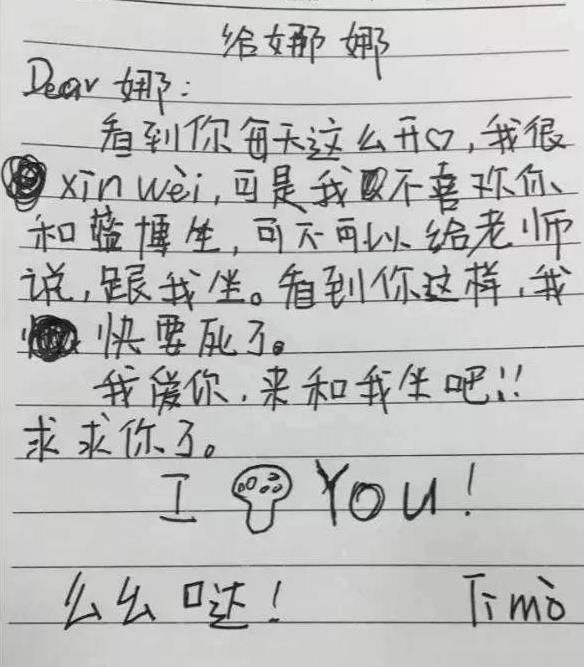 给娜娜
Dear 娜:
看到你每天这么开♡,我很
xīn wèi,可是我不喜欢你
和蓝博生,可不可以给老师
说,跟我坐。看到你这样,我
快要死了。
我爱你,来和我坐吧!!
求求你了。
I YOU!
么么口达! Timò